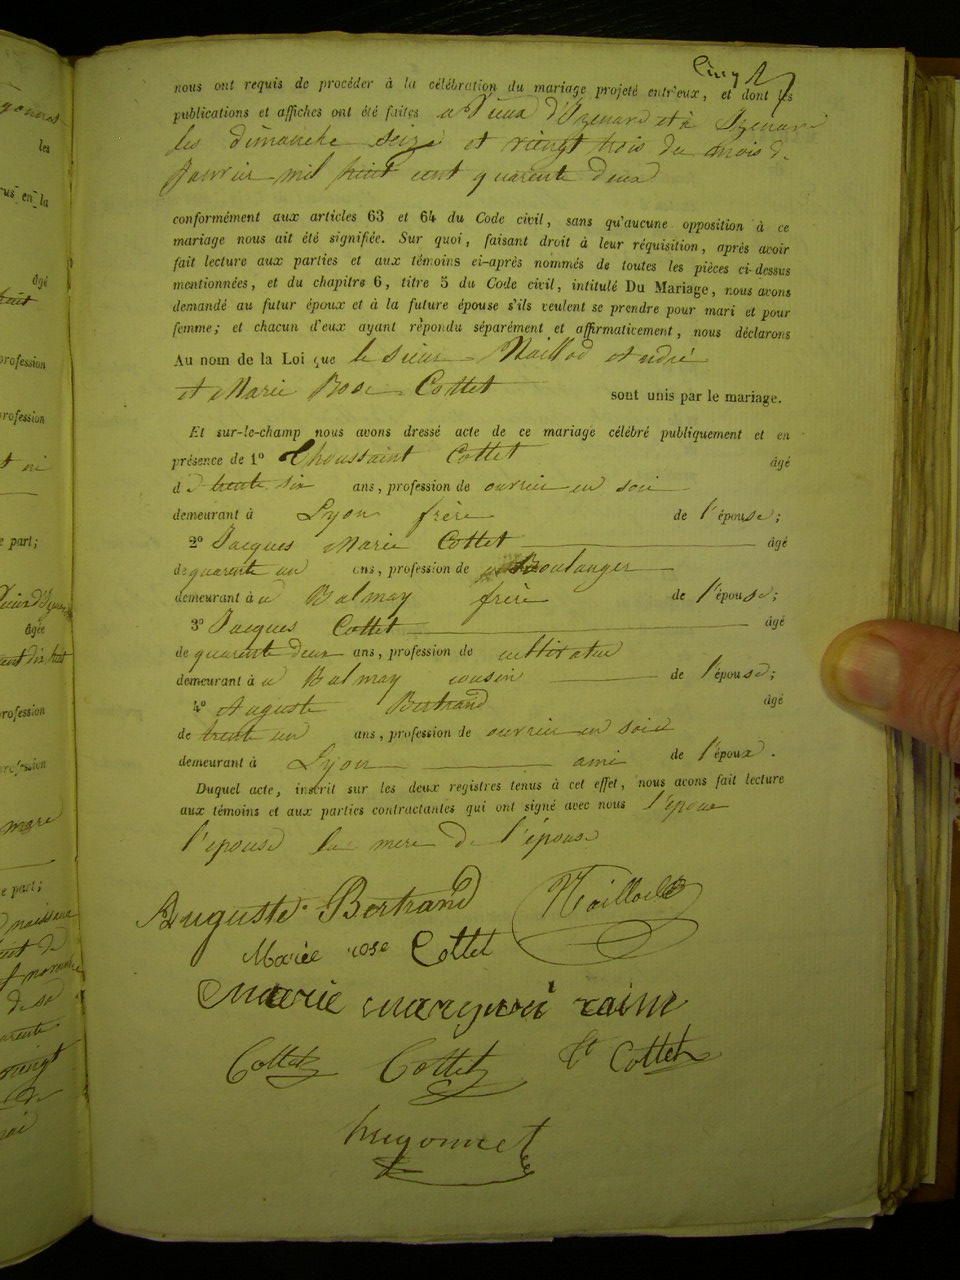 Cinq
nous ont requis de procéder à la célébration du mariage projeté entr'eux, et dont les
publications et affiches ont été faites a Vieux d'Izenave et à Izenave
les dimanche seize et vingt trois du mois de
Janvier mil huit cent quarente deux
conformément aux articles 63 et 64 du Code civil, sans qu'aucune opposition à ce
mariage nous ait été signifiée. Sur quoi, faisant droit à leur réquisition, après avoir
fait lecture aux parties et aux témoins ci-après nommés de toutes les pièces ci-dessus
mentionnées, et du chapitre 6, titre 5 du Code civil, intitulé Du Mariage, nous avons
demandé au futur époux et à la future épouse s'ils veulent se prendre pour mari et pour
femme; et chacun d'eux ayant répondu séparément et affirmativement, nous déclarons
Au nom de la Loi que le sieur Maillod André
et Marie Rose Cottet sont unis par le mariage.
Et sur-le-champ nous avons dressé acte de ce mariage célébré publiquement et en
présence de 1º Thoussaint Cottet âgé
de trente six ans, profession de ouvrier en soie
demeurant à Lyon frère de l'épouse;
2º Jacques Marie Cottet âgé
de quarente un ans, profession de Boulanger
demeurant à a Balmay frère de l'épouse;
3º Jacques Cottet âgé
de quarente deux ans, profession de cultivateur
demeurant à a Balmay cousin de l'épouse;
4º Auguste Bertrand âgé
de trente un ans, profession de ouvrier en soie
demeurant à Lyon ami de l'époux.
Duquel acte, inscrit sur les deux registres tenus à cet effet, nous avons fait lecture
aux témoins et aux parties contractantes qui ont signé avec nous l'époux
l'épouse la mere de l'épouse
Auguste Bertrand Maillod
Mariée rose Cottet
Marie
Cottet Cottet Ct Cottet
hugonnet